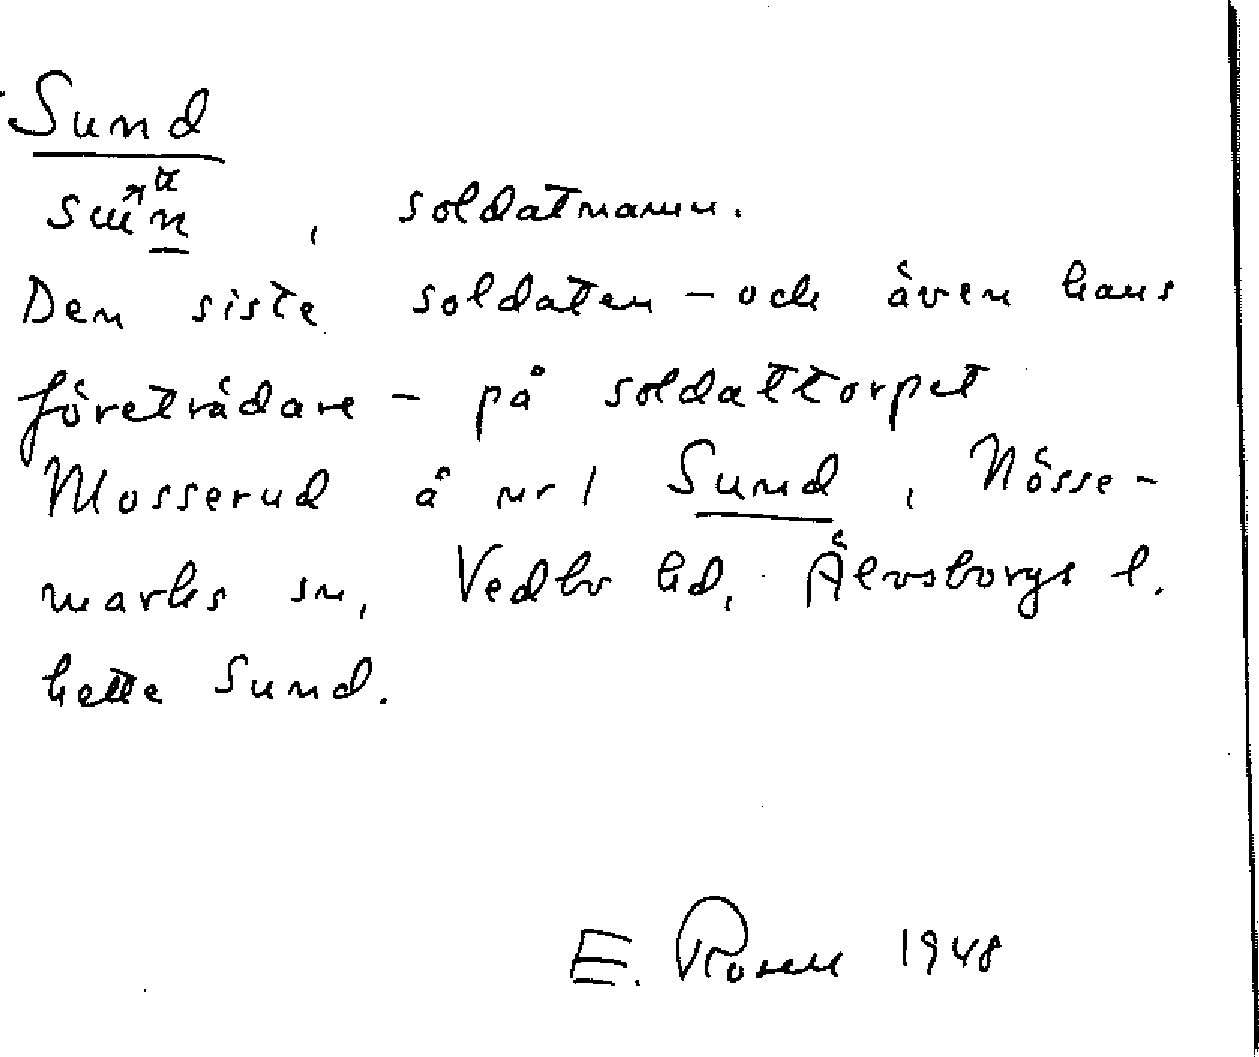 Sund
, soldatnamn.
Den siste soldaten - och även hans
företrädare - på soldattorpet
Mosserud å nr 1 Sund, Nösse-
marks sn, Vedbo hd, Älvsborgs l.
hette Sund.
E. Rosell 1948